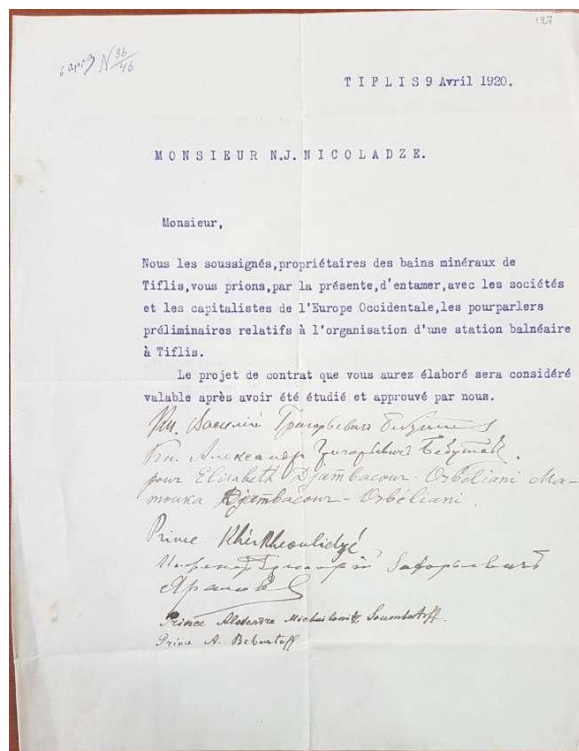 127
N 36/46
TIFLIS 9 Avril 1920.
MONSIEUR N.J. NICOLADZE.
Monsieur,
Nous les soussignés,propriétaires des bains minéraux de
Tiflis,vous prions,par la présente,d'entamer,avec les sociétés
et les capitalistes de l'Europe Occidentale,les pourparlers
préliminaires relatifs à l'organisation d'une station balnéaire
à Tiflis.
Le projet de contrat que vous aurez élaboré sera considéré
valable après avoir été étudié et approuvé par nous.
Кн. Василий Григорьевич
Кн. Александр Григорьевич Бебутов.
pour Elisabeth Djambacour-Orbéliani Ma-
mouka Djambacour-Orbéliani.
Prince Khérkheoulidzé
Prince Alexandre Michailowitz Soumbatoff.
Prince A. Beboutoff